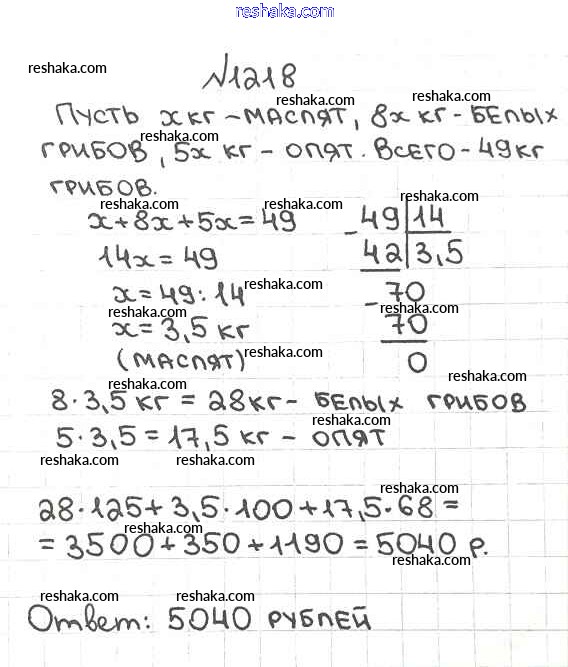 reshaka.com
reshaka.com
№1218
reshaka.com reshaka.com
Пусть x кг – маслят, 8x кг - белых
reshaka.com
грибов, 5x кг – опят. Всего - 49 кг
грибов.
reshaka.com reshaka.com
x+8x+5x=49
49 14
14x=49
42 3,5
reshaka.com
x=49:14
70
reshaka.com reshaka.com
x=3,5 кг
70
(маслят)
reshaka.com
0
reshaka.com reshaka.com
8·3,5 кг = 28 кг - белых грибов
reshaka.com
5·3,5=17,5 кг – опят
reshaka.com reshaka.com
reshaka.com
28·125+3,5·100+17,5·68=
reshaka.com
=3500+350+1190=5040 р.
reshaka.com
reshaka.com reshaka.com
Ответ: 5040 рублей
reshaka.com reshaka.com